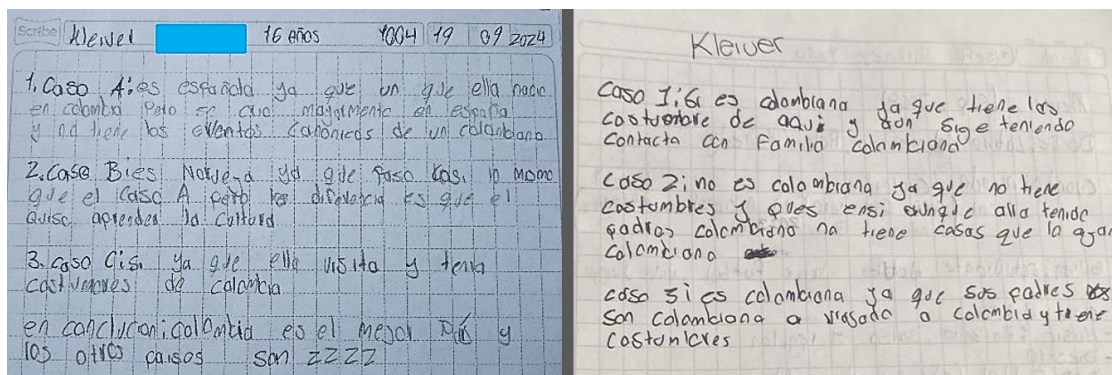 Scribe Kleiver 16 años 1004 19 09 2024
1. Caso A: es española ya que un que ella nacio
en colombia Pero se crio mayormente en españa
y no tiene los eventos canonicos de un colombiano
2. Caso B: es Noruega ya que Paso kasi lo mismo
que el caso A pero la diferencia es que el
quiso aprender la cultura
3. caso C: si ya que ella visita y tenia
costumbres de colombia
en conclucion: colombia es el mejor País y
los otros paises son zzzz
Kleiver
Caso 1: Si es colombiana ya que tiene las
costumbre de aqui y aun sige teniendo
contacto con Familia colombiana
caso 2: no es colombiana ya que no tiene
costumbres y pues ensi aunque alla tenido
padres colombiano no tiene cosas que la aga
colombiano
caso 3: es colombiana ya que sus padres
son colombiana a viajado a colombia y tiene
costumbres